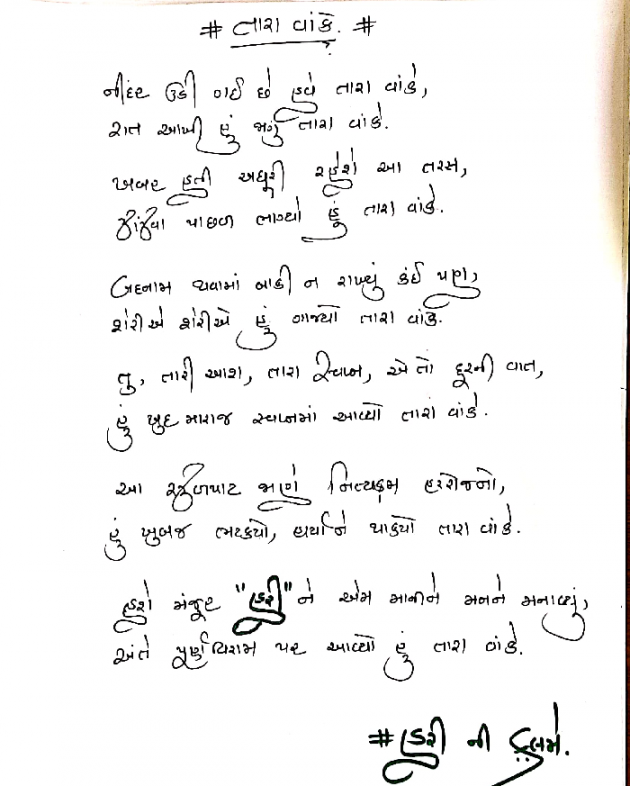 # તારા વાંકે. #
નીંદર ઉડી ગઈ છે હવે તારા વાંકે,
રાત આખી હું જાગું તારા વાંકે.
ખબર હતી અધૂરી રહેશે આ તરસ,
ઝાંઝવા પાછળ લાગ્યો હું તારા વાંકે.
બદનામ થવામાં બાકી ન રાખ્યું કંઈ પણ,
શેરીએ શેરીએ હું ગાજ્યો તારા વાંકે.
તુ, તારી આશ, તારા સ્વપ્ન, એ તો દૂરની વાત,
હું ખુદ મારાજ સ્વપ્નમાં આવ્યો તારા વાંકે.
આ રઝળપાટ જાણે નિત્યક્રમ હરરોજનો,
હું ખુબજ ભટક્યો, હાર્યો ને થાક્યો તારા વાંકે.
હશે મંજૂર "હરી" ને એમ માનીને મનને મનાવ્યું,
અંતે પૂર્ણવિરામ પર આવ્યો હું તારા વાંકે.
#હરી ની કલમે.